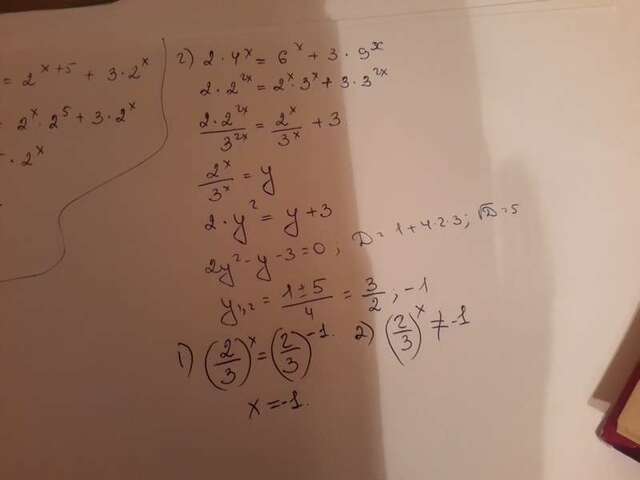 = 2^{x+5} + 3·2^x
2^x·2^5 + 3·2^x
·2^x
2) 2·4^x = 6^x + 3·9^x
2·2^{2x} = 2^x·3^x + 3·3^{2x}
2·2^{2x}/3^{2x} = 2^x/3^x + 3
2^x/3^x = y
2·y^2 = y + 3
2y^2 - y - 3 = 0; D = 1 + 4·2·3; √D = 5
y_{1,2} = (1 ± 5)/4 = 3/2; -1
1) (2/3)^x = (2/3)^{-1}. 2) (2/3)^x ≠ -1
x = -1.